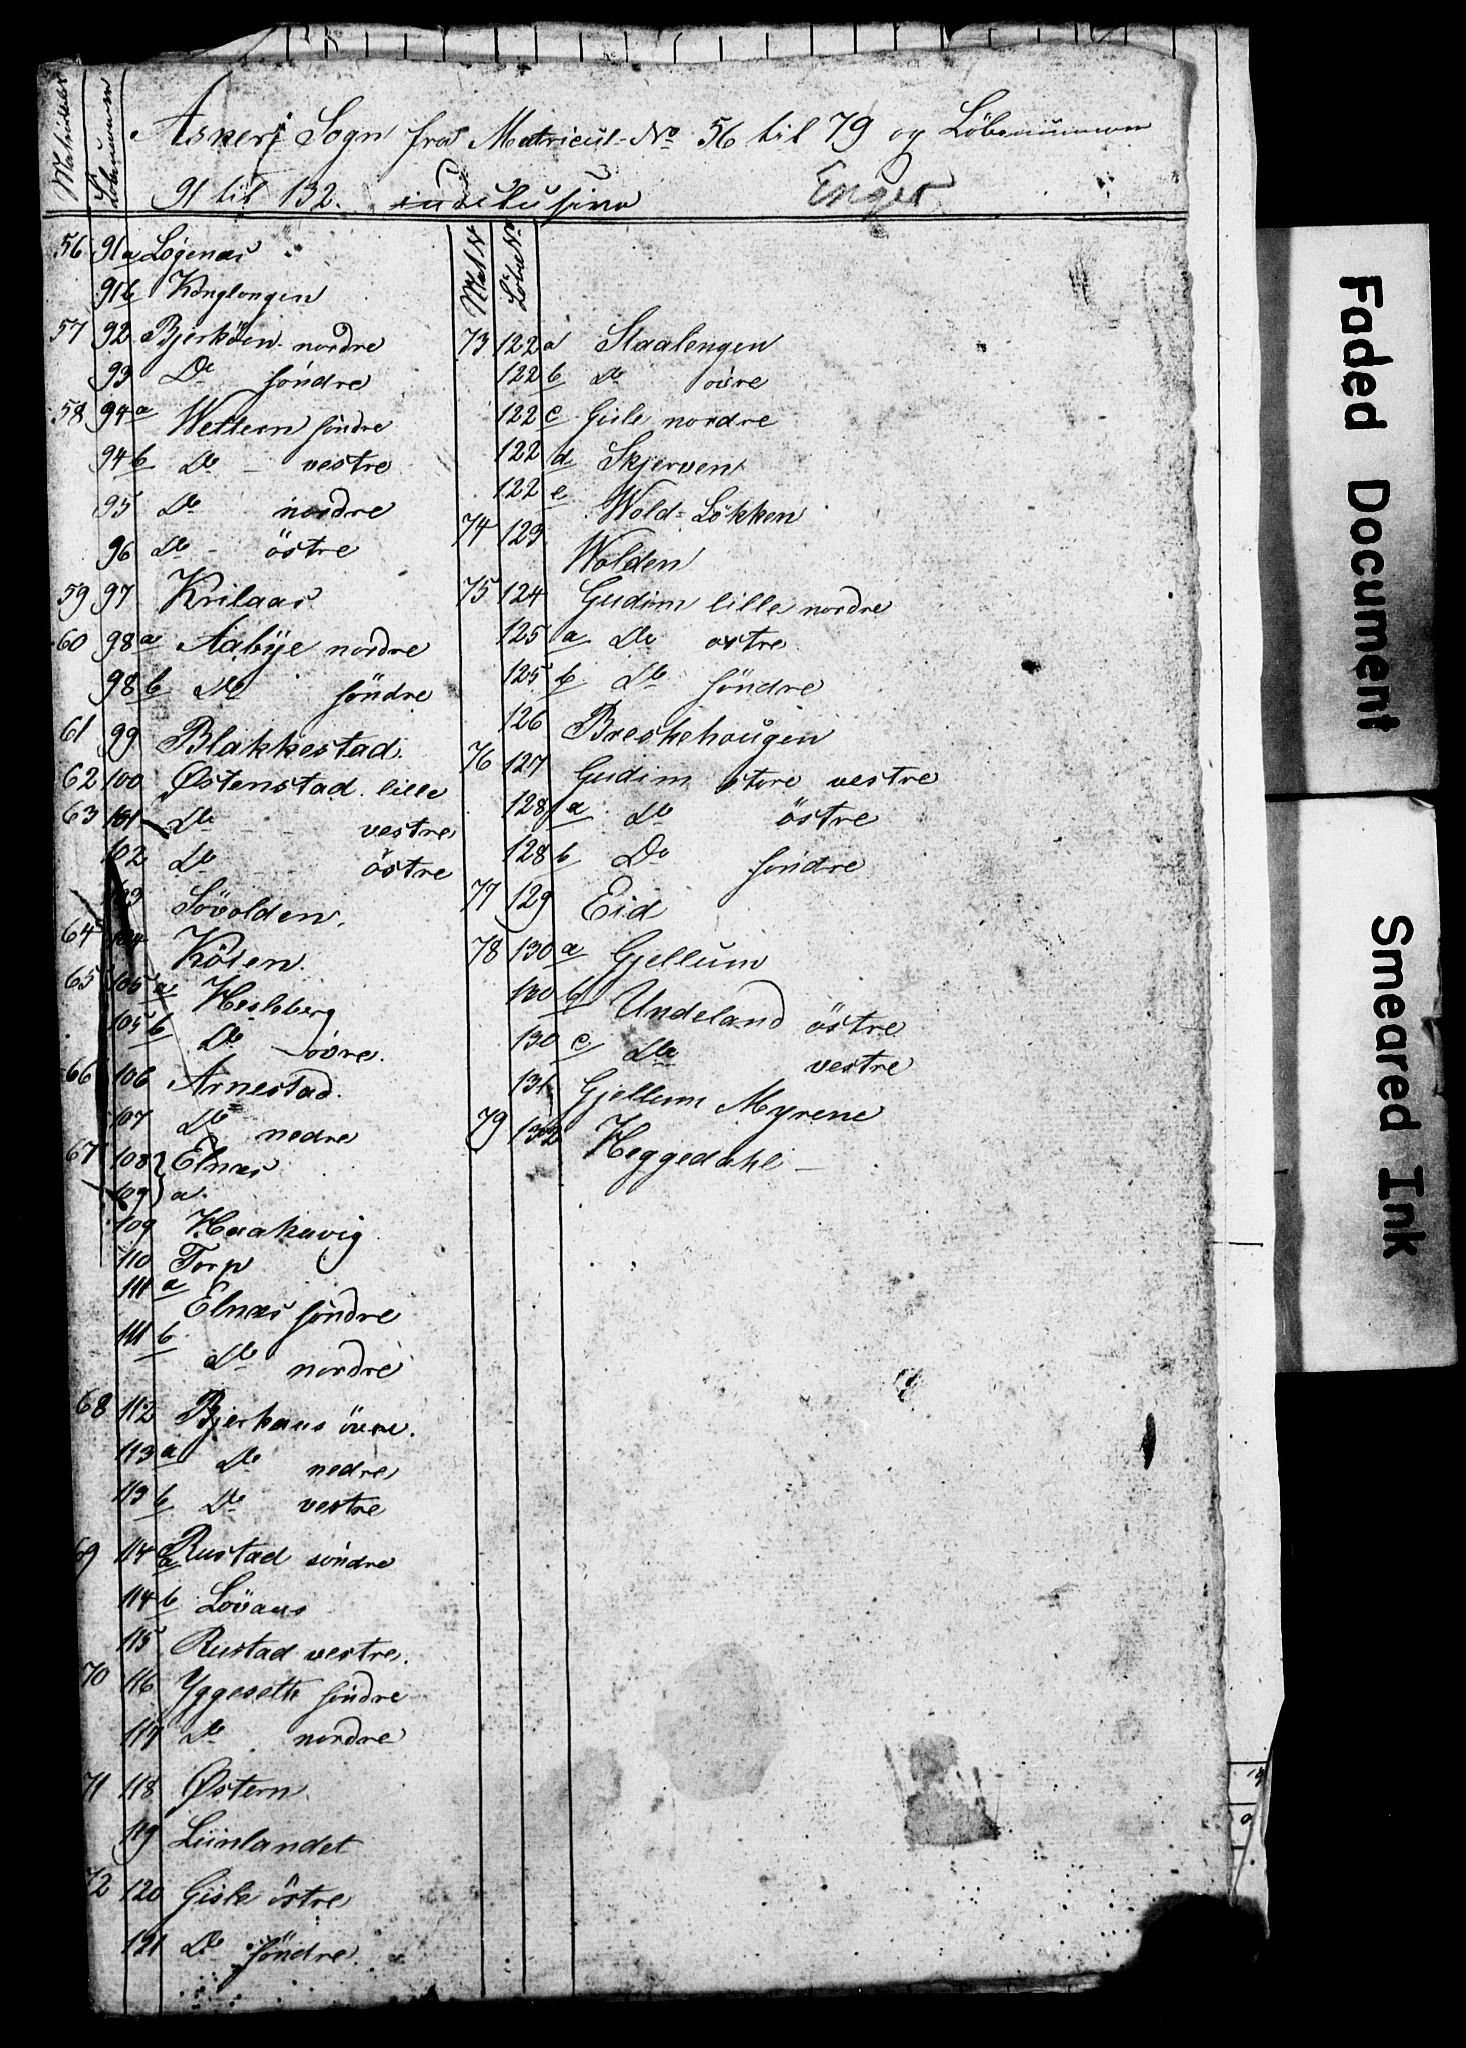 Matricul Löbenummer
Askers Sogn fra Matricul-No 56 til 79 og Löbenummer
91 til 132. indclusive Enger
56 91a Løgenæs
91b Konglongen
57 92 Bjerköen nordre
93 Do söndre
58 94a Wettern söndre
94b Do - vestre
95 Do nordre
96 Do - östre
59 97 Krilaas
60 98a Aabye nordre
98b Do söndre
61 99 Blakkestad.
62 100 Østenstad lille
63 101 Do vestre
102 Do östre
103 Sövolden.
64 104 Kölen.
65 105a Hesleberg
105b Do övre.
66 106 Arnestad.
107 Do nedre
67 108 } Elnæs
109 } a.
109 Haakavig
110 Torp
111a Elnæs söndre
111b Do nordre
68 112 Bjerkaas övre.
113a Do nedre
113b Do vestre
69 114a Rustad söndre
114b Lövaas
115 Rustad vestre.
70 116 Yggesette söndre
117 Do nordre
71 118 Østern.
119 Liinlandet
72 120 Giske östre
121 Do söndre.
Mat N Löbe No
73 122a Staalengen
122b Do övre
122c Gisle nordre
122d Skjerven
122e Wold-Lökken
74 123 Wolden
75 124 Gudim lille nordre
125a Do östre
125b Do söndre
126 Breskehaugen
76 127 Gudim store vestre
128a Do östre
128b Do söndre
77 129 Eid
78 130a Gjellum
130b Undeland östre
130c Do vestre
131 Gjellum Myrene
79 132 Heggedahl -
Faded Document
Smeared Ink